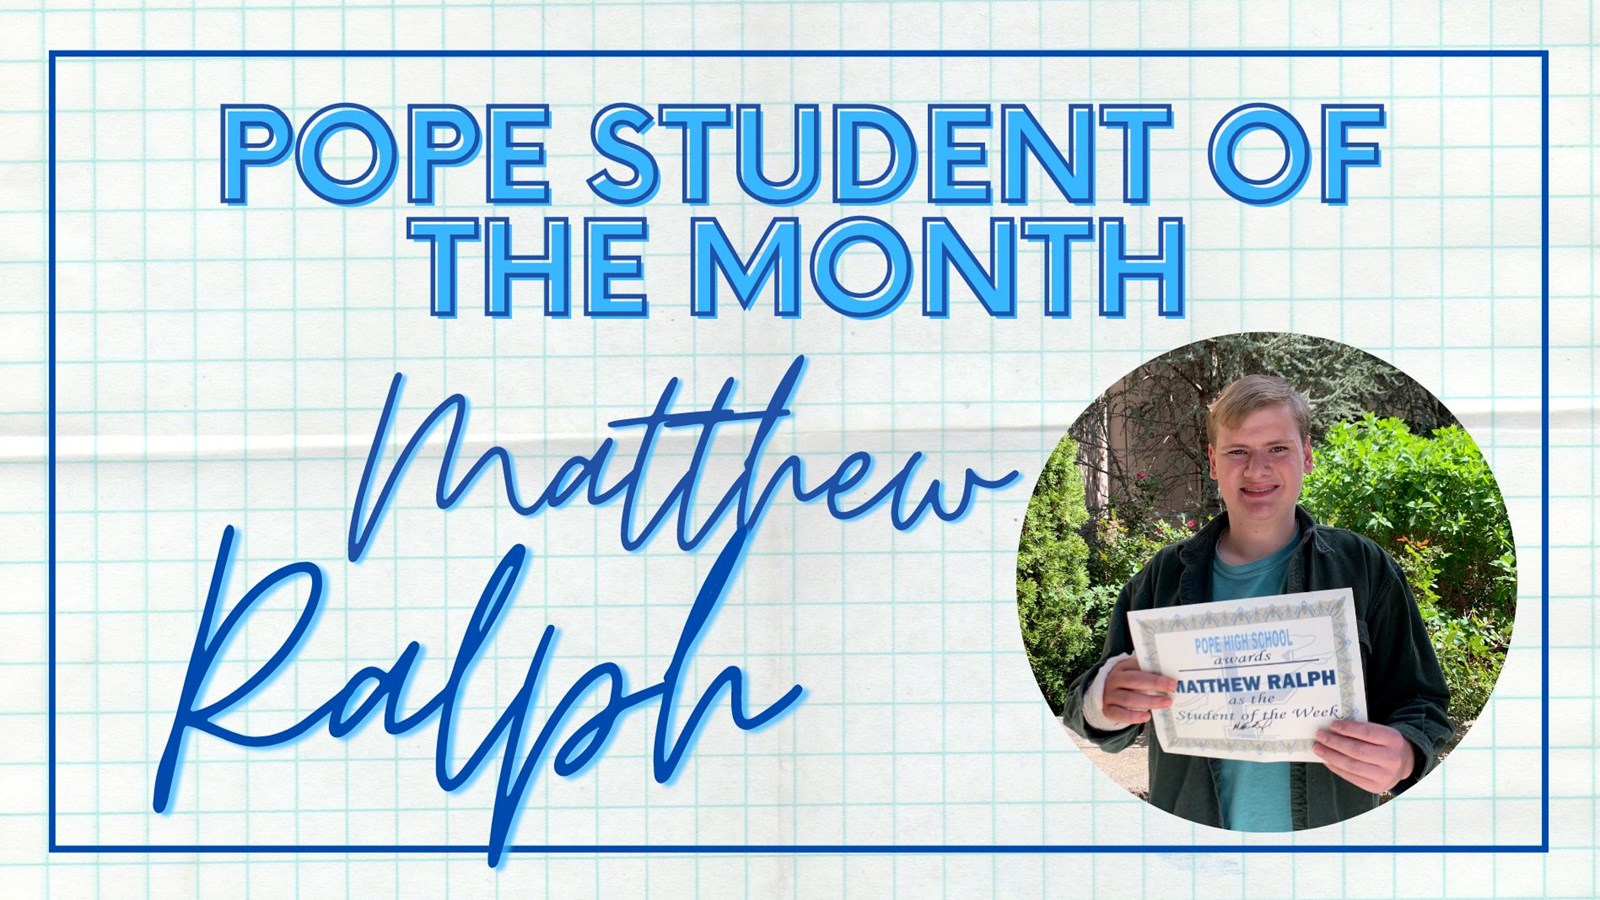 POPE STUDENT OF
THE MONTH
Matthew
Ralph
POPE HIGH SCHOOL
awards
MATTHEW RALPH
as the
Student of the Week